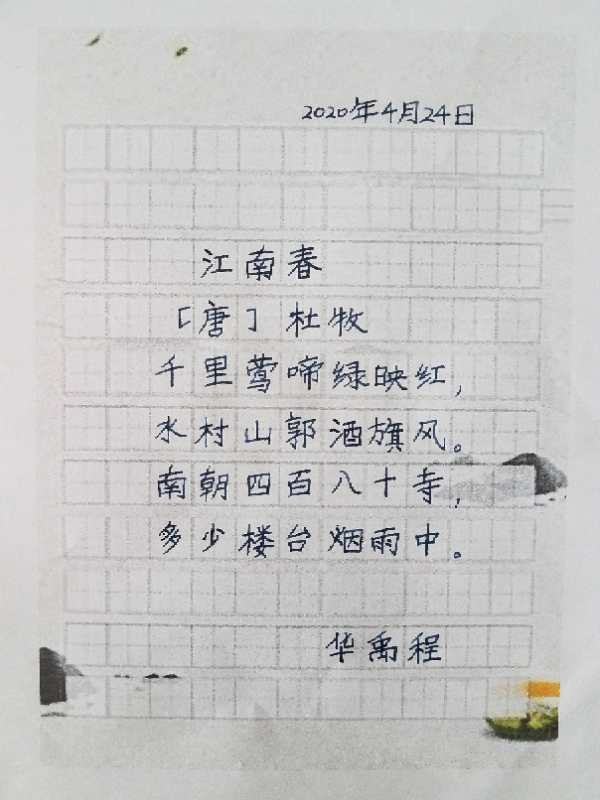 2020年4月24日
江南春
[唐] 杜牧
千里莺啼绿映红，
水村山郭酒旗风。
南朝四百八十寺，
多少楼台烟雨中。
华禹程